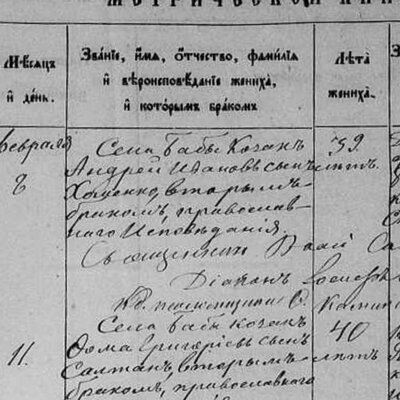 МЕТРИЧЕСКОЙ КНИ
Мѣсяцъ
и день.
Званіе, имя, отчество, фамилія
и вѣроисповѣданіе жениха,
и которымъ бракомъ
Лѣта
жениха.
Февраля
8
Села Бабы Кочан
Андрей Ивановъ сынъ
вторымъ
бракомъ, православ-
наго Исповѣданія.
39.
лѣтъ.
Священникъ
Діаконъ
11.
Села Бабы Кочан
Ѳома Григоріевъ сынъ
Салтан, вторымъ
бракомъ, православнаго
40
лѣтъ